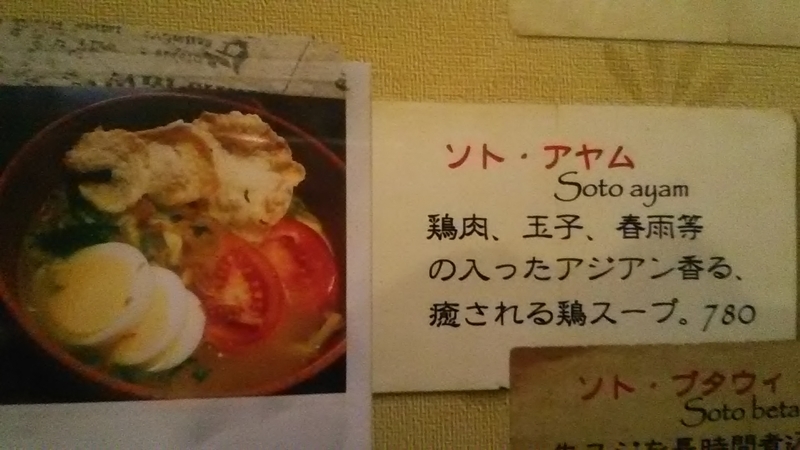 ソト・アヤム
Soto ayam
鶏肉、玉子、春雨等
の入ったアジアン香る、
癒される鶏スープ。780
ソト・ブタウィ
Soto beta
を長時間煮込